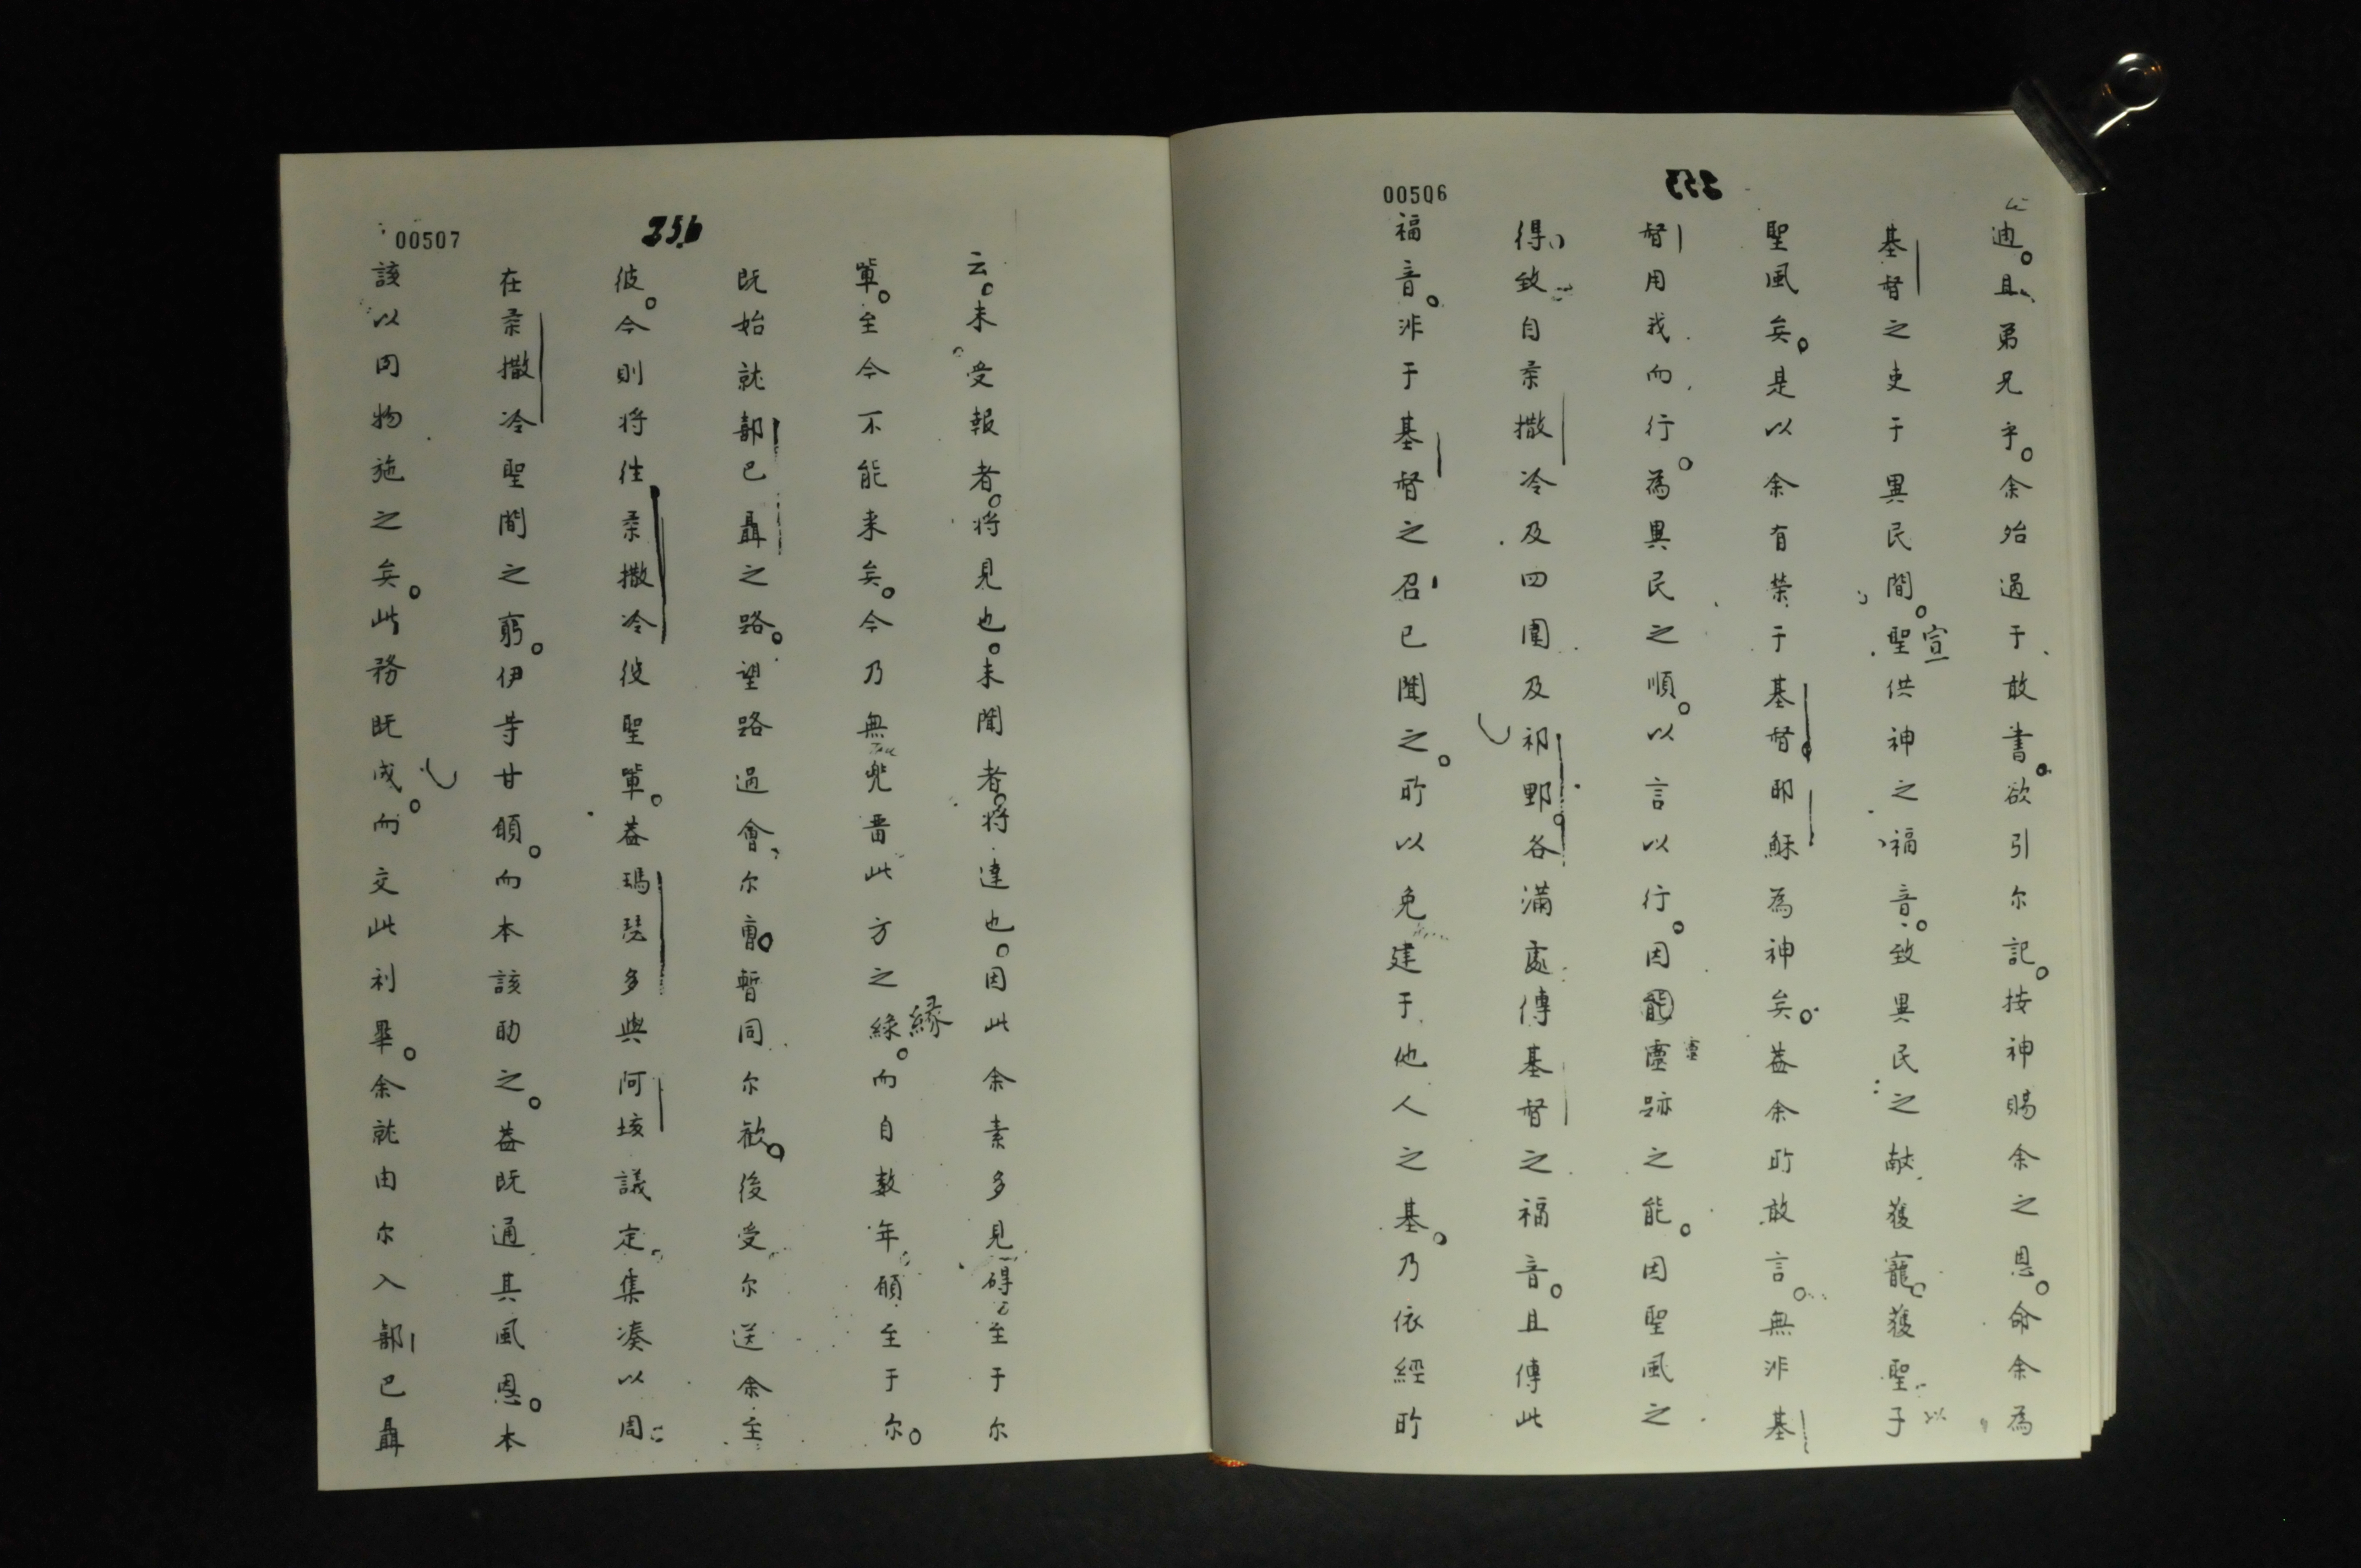 00506
353
迪。且弟兄乎。余殆過于敢書。欲引尔記。按神賜余之恩。命余為
基督之吏于異民間。聖供神之福音。致異民之献獲寵。獲聖于
宣
聖風矣。是以余有荣于基督。耶穌為神矣。葢余所敢言。無非基
督用我而行。為異民之順。以言以行。因能靈跡之能。因聖風之
得致自柔撒冷及四圍及祁野。各滿處傳基督之福音。且傳此
福音。非于基督之召已聞之。所以免建于他人之基。乃依經所
00507
356
云。未受報者。将見也。未聞者。将達也。因此余素多見碍至于尔
軰。至今不能来矣。今乃無兠畱此方之綠。而自数年願至于尔。
緣
既始就部巴聶之路。望路過會尔軰。暫同尔歡。後受尔送余至
彼。今則将徃柔撒冷彼聖軰。葢瑪琵多與阿垓議定。集凑以周
在柔撒冷聖間之窮。伊等甘願。而本該助之。葢既通其風恩。本
該以肉物施之矣。此務既成。而交此利畢。余就由尔入部巴聶